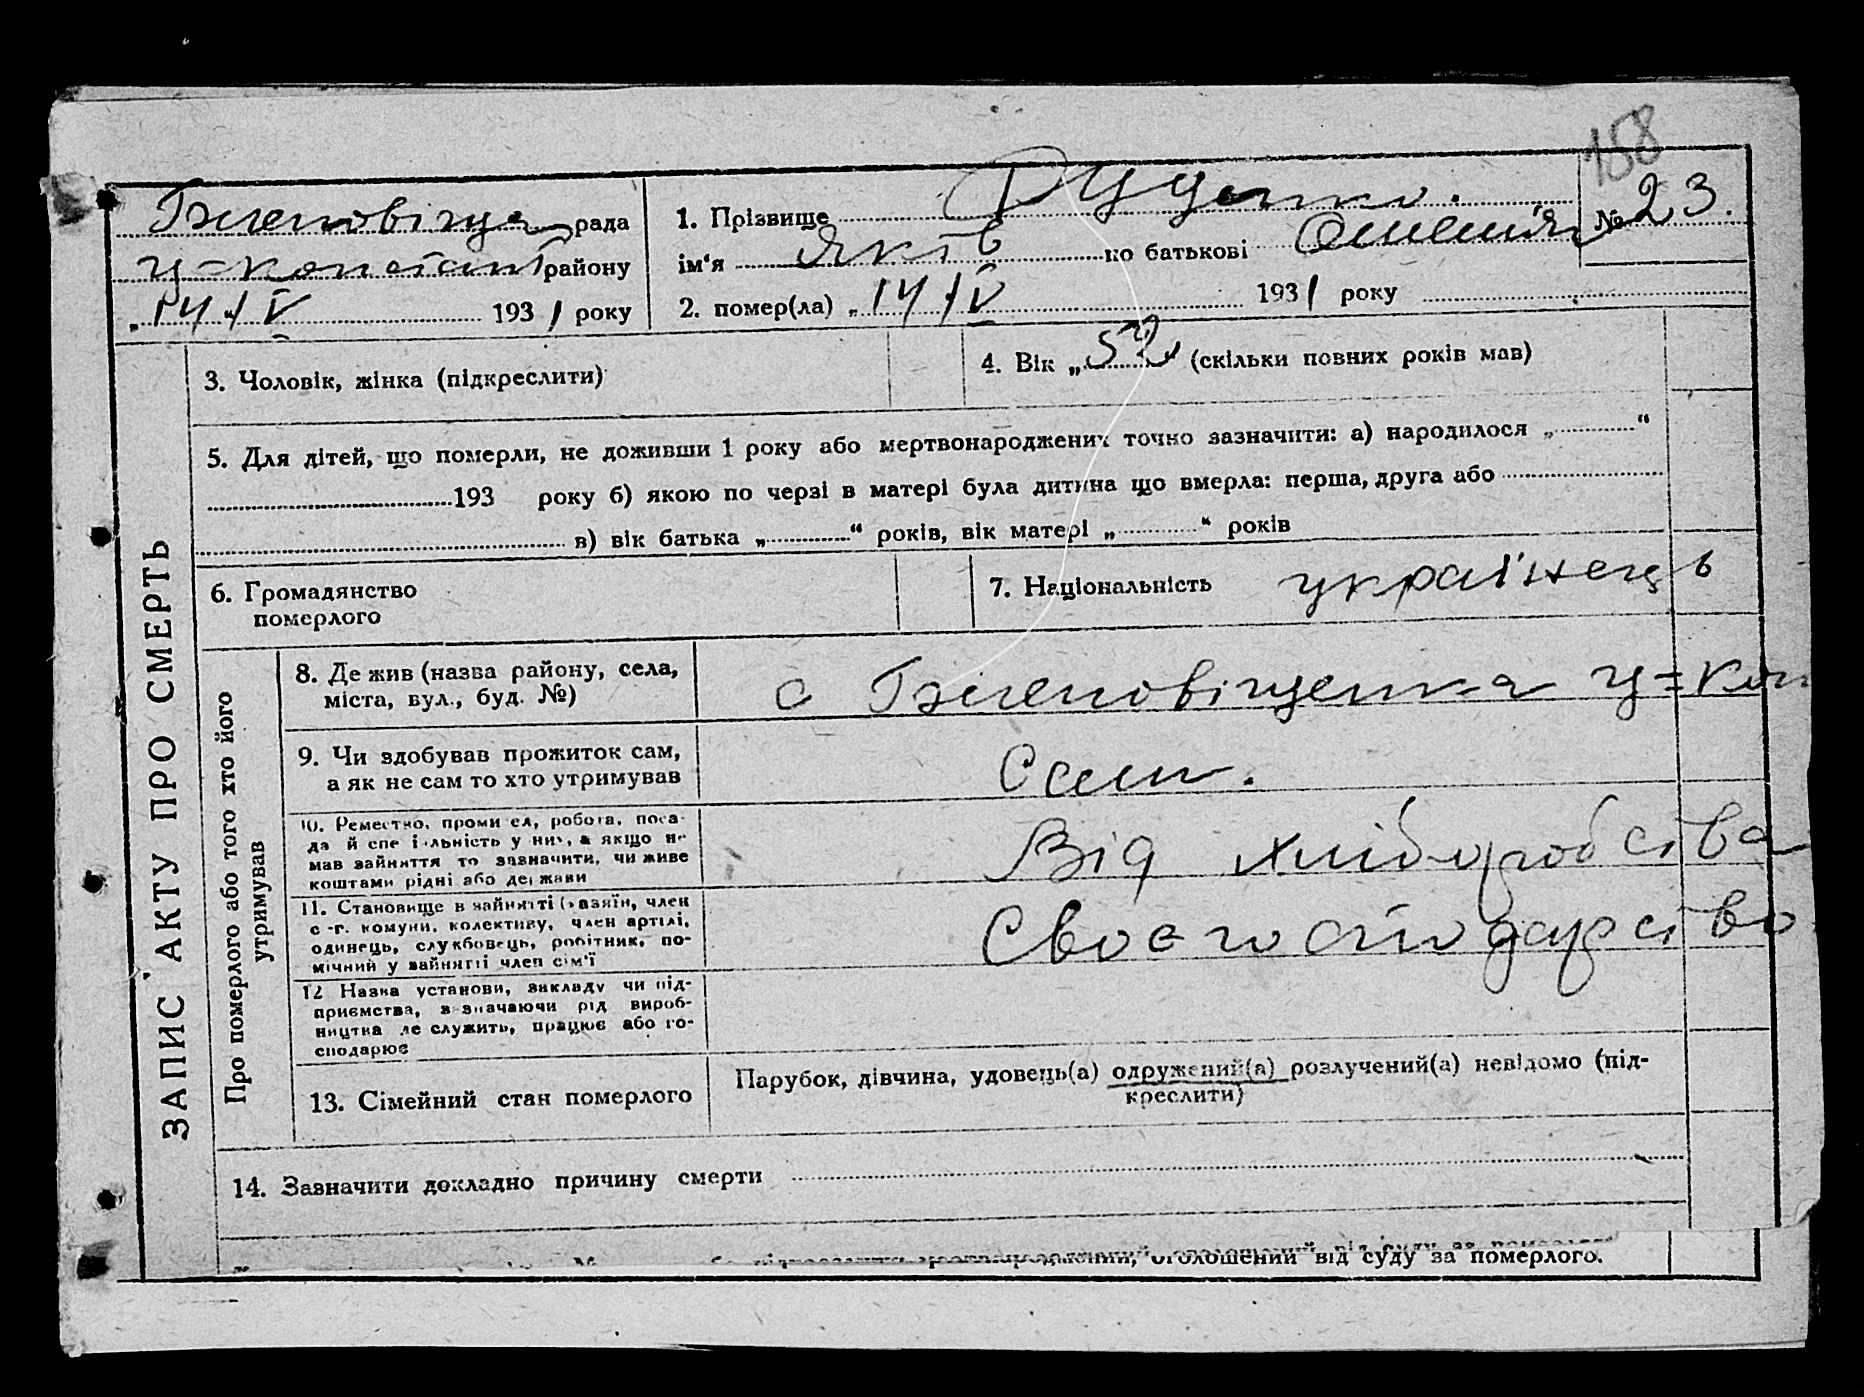 158
рада 1. Прізвище № 23.
району ім'я Яків по батькові
„14/V 1931 року 2. помер(ла) „14/V 1931 року
3. Чоловік, жінка (підкреслити) 4. Вік „52" (скільки повних років мав)
5. Для дітей, що померли, не доживши 1 року або мертвонароджених точно зазначити: а) народилося „ “
193 року б) якою по черзі в матері була дитина що вмерла: перша, друга або
в) вік батька „ “ років, вік матері „ “ років
6. Громадянство
померлого
7. Національність українець
ЗАПИС АКТУ ПРО СМЕРТЬ
Про померлого або того хто його
утримував
8. Де жив (назва району, села,
міста, вул., буд. №)
с
9. Чи здобував прожиток сам,
а як не сам то хто утримував
Сам.
10. Ремество, промисел, робота, поса-
да й спеціяльність у них, а якщо не
мав зайняття то зазначити, чи живе
коштами рідні або держави
Від хліборобства
11. Становище в зайнятті (хазяїн, член
с.-г. комуни, колективу, член артілі,
одинець, службовець, робітник, по-
мічний у зайнятті член сім'ї
Своє господарство
12 Назва установи, закладу чи під-
приємства, зазначаючи рід вироб-
ництва де служить, працює або го-
сподарює
13. Сімейний стан померлого
Парубок, дівчина, удовець(а) одружений(а) розлучений(а) невідомо (під-
креслити)
14. Зазначити докладно причину смерти
оголошений від суду за померлого.